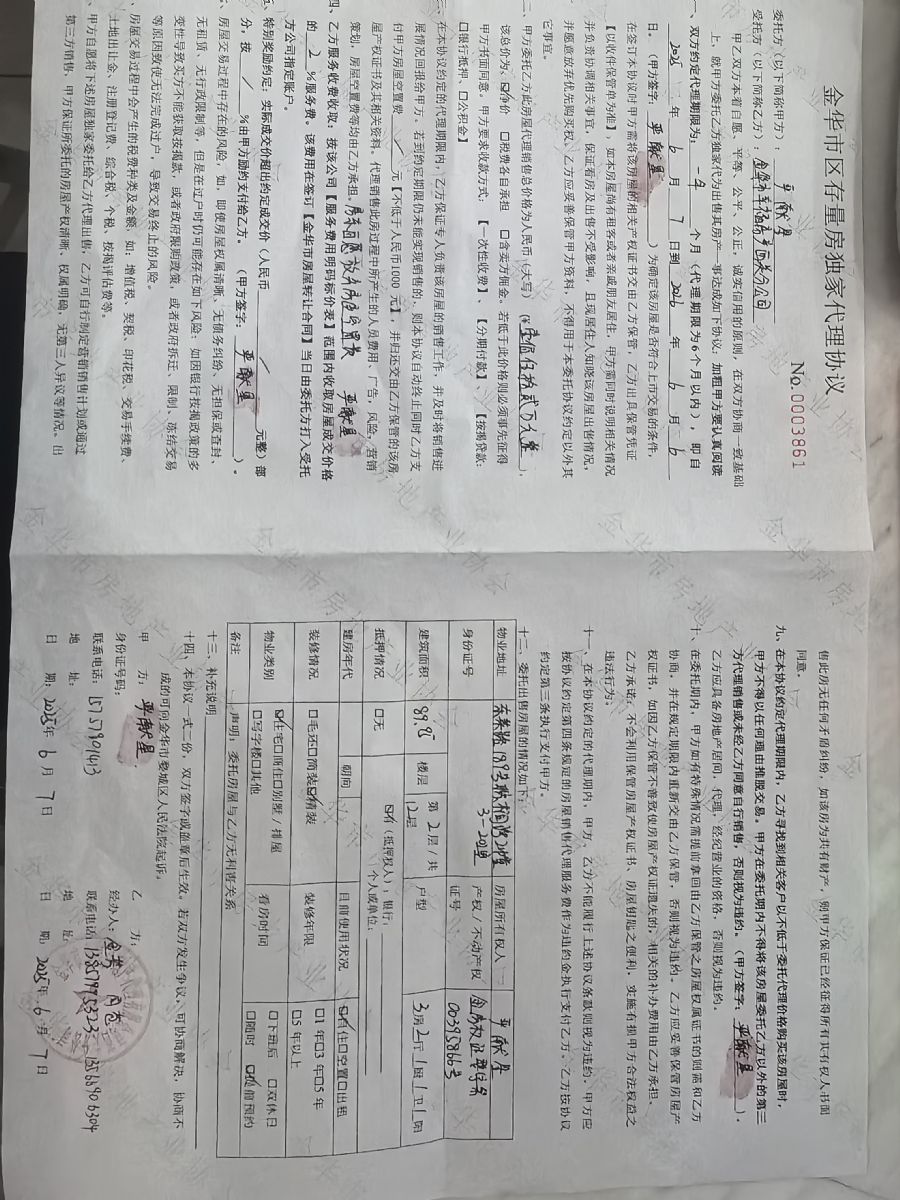 金华市区存量房独家代理协议
No.0003861
委托方（以下简称甲方）：严献星
受托方（以下简称乙方）：
甲乙双方本着自愿、平等、公平、公正，诚实信用的原则，在双方协商一致基础
上，就甲方委托乙方独家代为出售其房产一事达成如下协议：如租甲方要认真阅读
一、双方约定代理期限为：一年 个月（代理期限为6个月以内），即自
2025 年 6 月 7 日到 2026 年 6 月 6
日。（甲方签字：严献星）为确定该房屋是否符合上市交易的条件，
在签订本协议时甲方需将该房屋的相关产权证书交由乙方保管，乙方出具保管凭证
【以收件保管书为准】，如本房屋尚有租客或者亲戚朋友居住，甲方需同时说明相关情况
并负责协调相关事宜，保证看房及出售不受影响，且现居住人知晓该房屋出售情况，
并愿意放弃优先购买权。乙方应妥善保管甲方资料，不得用于本委托协议约定以外其
它事宜。
二、甲方委托乙方此房屋代理销售总价格为人民币（大写）（¥壹佰伍拾贰万元整），
该总价为：☑净价 □税费各自承担 □含卖方佣金，若低于此价格则必须事先征得
甲方书面同意。甲方要求收款方式：【一次性收费】、【分期付款】、【按揭贷款：
□银行抵押、□公积金】
三、在本协议约定的代理期限内，乙方保证专人负责该房屋的销售工作，并及时将销售进
展情况回报给甲方。若到约定期限仍未能实现销售的，则本协议自动终止同时乙方支
付甲方房屋空置费 / 元【不低于人民币1000元】，并归还交由乙方保管的该房
屋产权证书及其相关资料。代理销售此房过程中所产生的人员费用、广告，风险，营销
策划、房屋空置费等均由乙方承担。严献星
四、乙方服务收费收取：按该公司【服务费用明码标价表】范围内收取房屋成交价格
的 2 %服务费。该费用在签订【金华市房屋转让合同】当日由委托方打入受托
方公司指定账户。
五、特别奖励约定：实际成交价超出约定成交价（人民币 / 元整）部
分，按 / %由甲方励约支付给乙方。（甲方签字：严献星）。
房屋交易过程中存在的风险：如，即便房屋权属清晰、无债务纠纷、无担保或查封、
无租赁、无行政限制等，但是在过户时仍可能存在如下风险：如因银行按揭政策的多
变性导致买方不能获取按揭款，或者政府限购政策，或者政府拆迁、限制、冻结交易
等原因致使无法完成过户，导致交易终止的风险。
房屋交易过程中会产生的税费种类及金额，如：增值税、契税、印花税、交易手续费、
土地出让金、注册登记费、综合税、个税、按揭评估费等。
甲方自愿将下述房屋独家委托给乙方代理出售，乙方可自行制定营销销售计划或通过
第三方销售，甲方保证所委托的房屋产权清晰、权属明确，无第三人异议等情况。出
售此房无任何矛盾纠纷，如该房为共有财产，则甲方保证已经征得所有共有权人书面
同意。
九、在本协议约定代理期限内，乙方寻找到相关客户以不低于委托代理价格购买该房屋时，
甲方不得以任何理由推脱交易。甲方在委托期内不得将该房屋委托乙方以外的第三
方代理销售或未经乙方同意自行销售，否则视为违约。（甲方签字：严献星）。
乙方应具备房地产居间，代理，经纪营业的资格，否则视为违约。
十、在委托期内，甲方如有特殊情况需提前拿回由乙方保管之房屋权属证书的则需和乙方
协商，并在规定期限内重新交由乙方保管，否则视为违约。乙方应妥善保管房屋产
权证书，如因乙方保管不善致使房屋产权证遗失的，相关的补办费用由乙方承担。
乙方承诺：不会利用保管房屋产权证书、房屋钥匙之便利，实施有损甲方合法权益之
违法行为。
十一、在本协议约定的代理期内，甲方、乙方不能履行上述协议条款则视为违约。甲方应
按协议约定第四条规定的房屋销售代理服务费作为违约金执行支付乙方。乙方按协议
约定第三条执行支付甲方。
十二、委托出售房屋的情况如下：
物业地址 3-202室 房屋所有权人 严献星
身份证号 产权/不动产权证号 00395866号
建筑面积 89.95 楼层 第2层/共12层 户型 3房2厅1厨1卫1阳
抵押情况 □无 ☑有（抵押权人）：银行： 个人或单位：
建房年代 朝向 目前使用状况 ☑自住□空置□出租
装修情况 □毛坯□简装☑精装 装修年限 □1年□3年□5年 □5年以上
物业类别 ☑住宅□商住□别墅/排屋 □写字楼□其他 看房时间 □下班后 □双休日 □随时 ☑提前预约
备注 声明：委托房屋与乙方无利害关系
十三、补充说明
十四、本协议一式二份，双方签字或盖章后生效。若双方发生争议，可协商解决，协商不
成的可向金华市婺城区人民法院起诉。
甲 方：严献星
身份证号码：
联系电话：15757901413
地 址：
日 期：2025年 6 月 7 日
乙 方：
经办人：
联系电话：13857995323 13566906304
地 址：
日 期：2025年 6 月 7 日